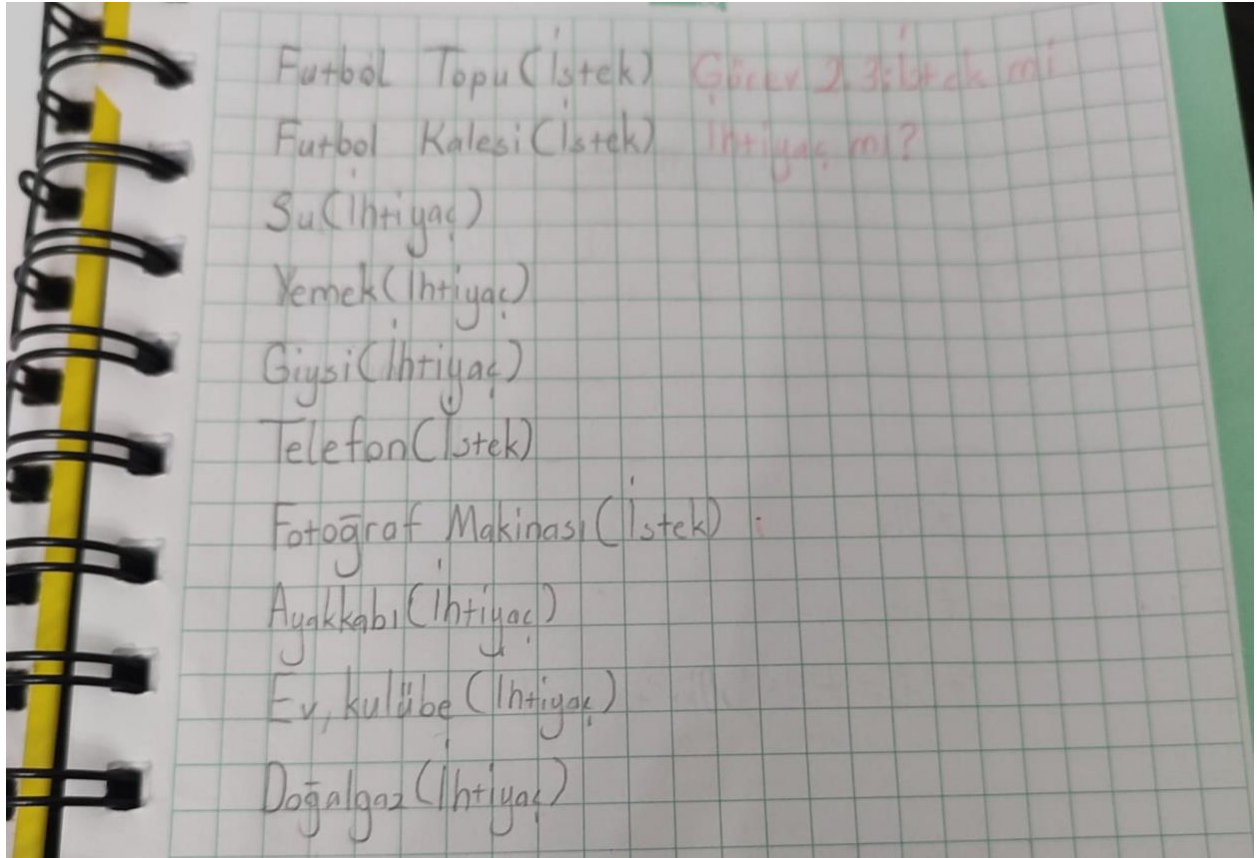 Futbol Topu(İstek) Görev 2.3: İstek mi
Futbol Kalesi(İstek) İhtiyaç mı?
Su(İhtiyaç)
Yemek(İhtiyaç)
Giysi(İhtiyaç)
Telefon(İstek)
Fotoğraf Makinası(İstek)
Ayakkabı(İhtiyaç)
Ev, kulübe(İhtiyaç)
Doğalgaz(İhtiyaç)